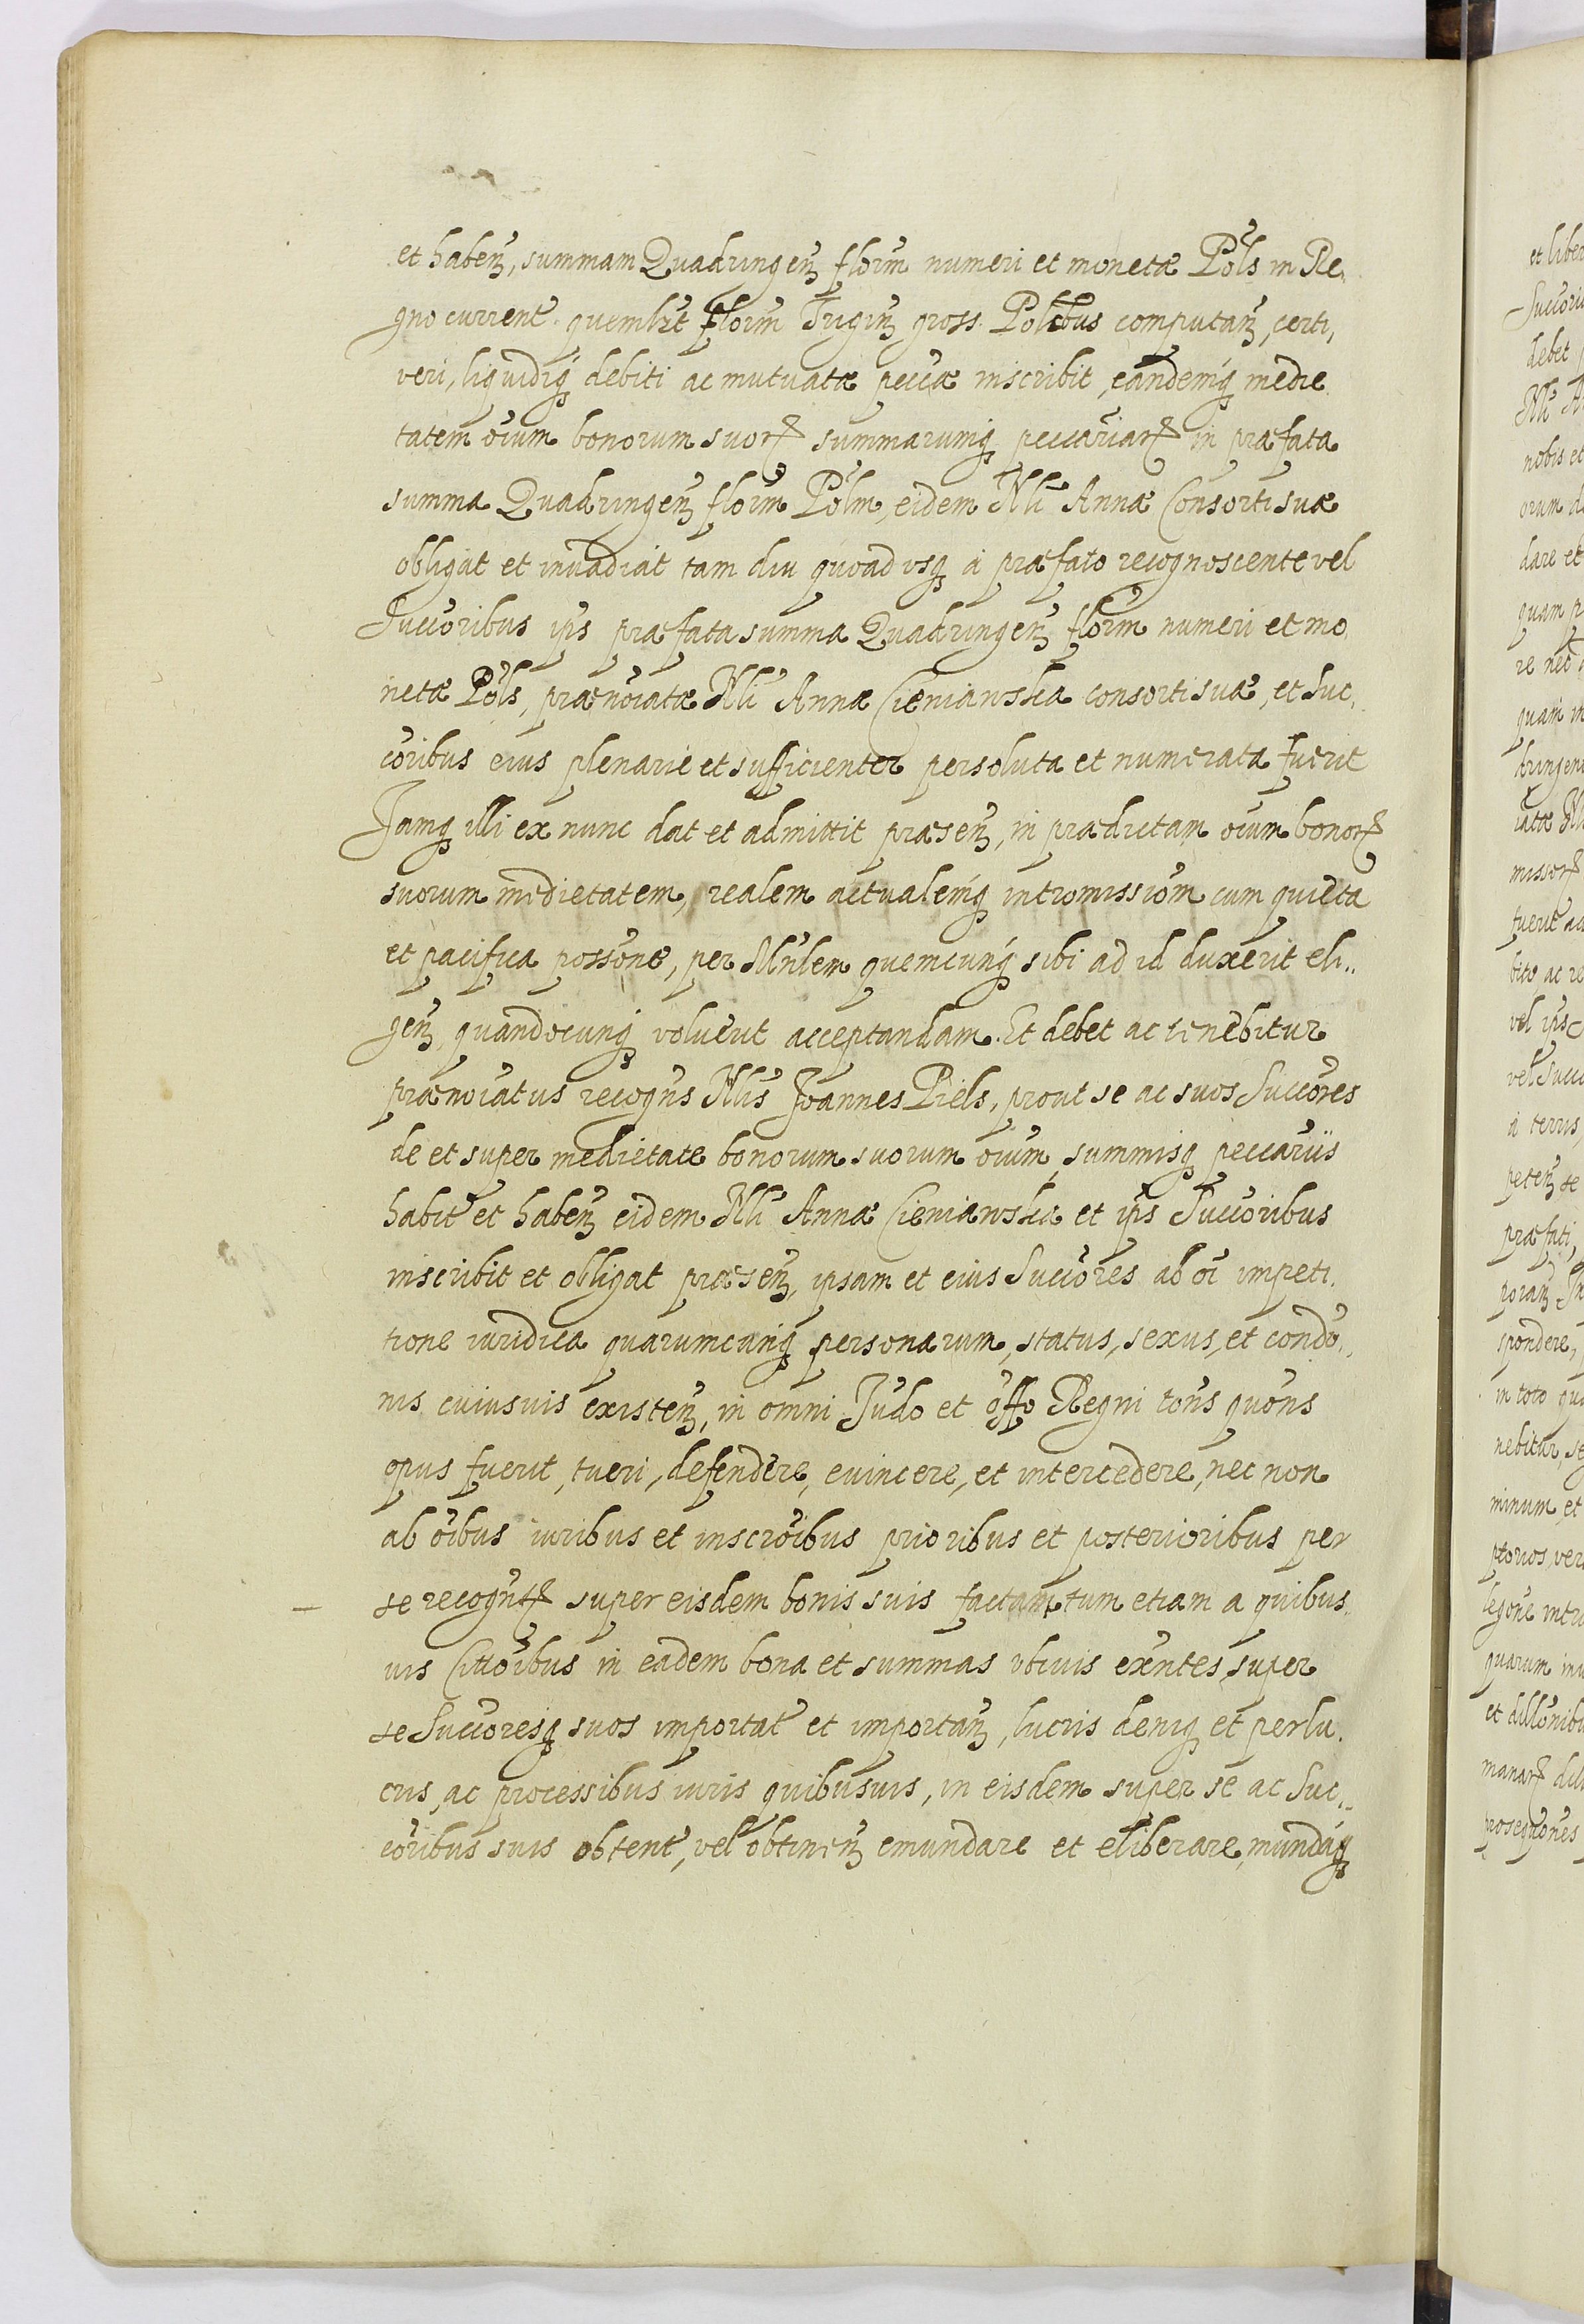 et haben̄, summam Quadringen̄ flor̄m numeri et monetæ Pol̄s in Re,
gno current̄ quemlz̄t flor̄m Trigin̄ gross Polc̄bus computan̄, certi,
veri, liquidiq̨ debiti ac mutuatæ pec̄cæ inscribit, eandemq̨ medie
tatem oīum bonorum suorꝝ summarumq̨ peccāriarꝝ in præfata
summa Quadringen̄ flor̄m Pol̄m, eidem Nl̄i Annæ Consorti suæ
obligat et inuadiat tam diu quoad vsq̨ à præfato recognoscente vel
Succ̄oribus ip̄s præfata summa Quadringen̄ flor̄m numeri et mo
netæ Pol̄s, prænoīatæ Nl̄i Annæ Cieniawska consorti suæ, et Suc,
cōribus eius plenariè et sufficienter persoluta et numerata fuerit
Jamq̨ illi ex nunc dat et admittit præsen̄, in prædictam oīum bonorꝝ
suorum medietatem, realem actualemq̨ intromissiōm cum quieta
et pacifica possōne, per Mn̄lem quemcunq̨ sibi ad id duxerit eli..
gen̄ quandocunq̨ voluerit acceptandam. Et debet ac tenebitur
prænoīatus recogn̄s Nl̄is Joannes Piels, prout se ac suos Succōres
de et super medietate bonorum suorum oīum, summisq̨ peccāriis
habit̄ et haben̄ eidem Nl̄i Annæ Cieniawska et ip̄s Succōribus
inscribit et obligat præsen̄, ipsam et eius Succōres ab oī impeti.
tione iuridica quarumcunq̨ personarum, status, sexus, et condō,,
nis cuiusuis existen̄, in omni Jud̄o et off̄o Regni tōns quōns
opus fuerit, tueri, defendere, euincere, et intercedere, nec non
ab oībus iuribus et inscrōibus prioribus et posterioribus per
— se recogn̄tꝝ super eisdem bonis suis factam tum etiam a quibus
uis Cittōibus in eadem bona et summas vbiuis exn̄tes, super
se Succōresq̨ suos importat̄ et importan̄, lucris deniq̨ et perlu.
cris, ac processibus iuris quibusuis, in eisdem super se ac Suc,..
cōribus suis obtent̄, vel obtinen̄ emundare et eliberare, mundaq̨